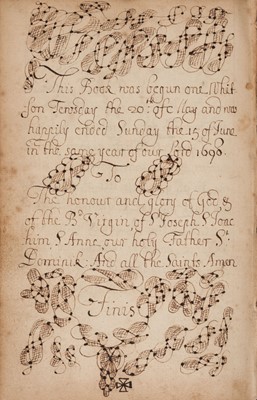 This Book was begun one Whit
son Teusday the 20th of May and now
happily ended Sunday the 15 of June
in the same year of our Lord 1698
To
The honour and glory of God &
of the Bd Virgin of St Joseph St Joac
him St Anne our holy Father St
Dominik: And all the Saints Amen
Finis